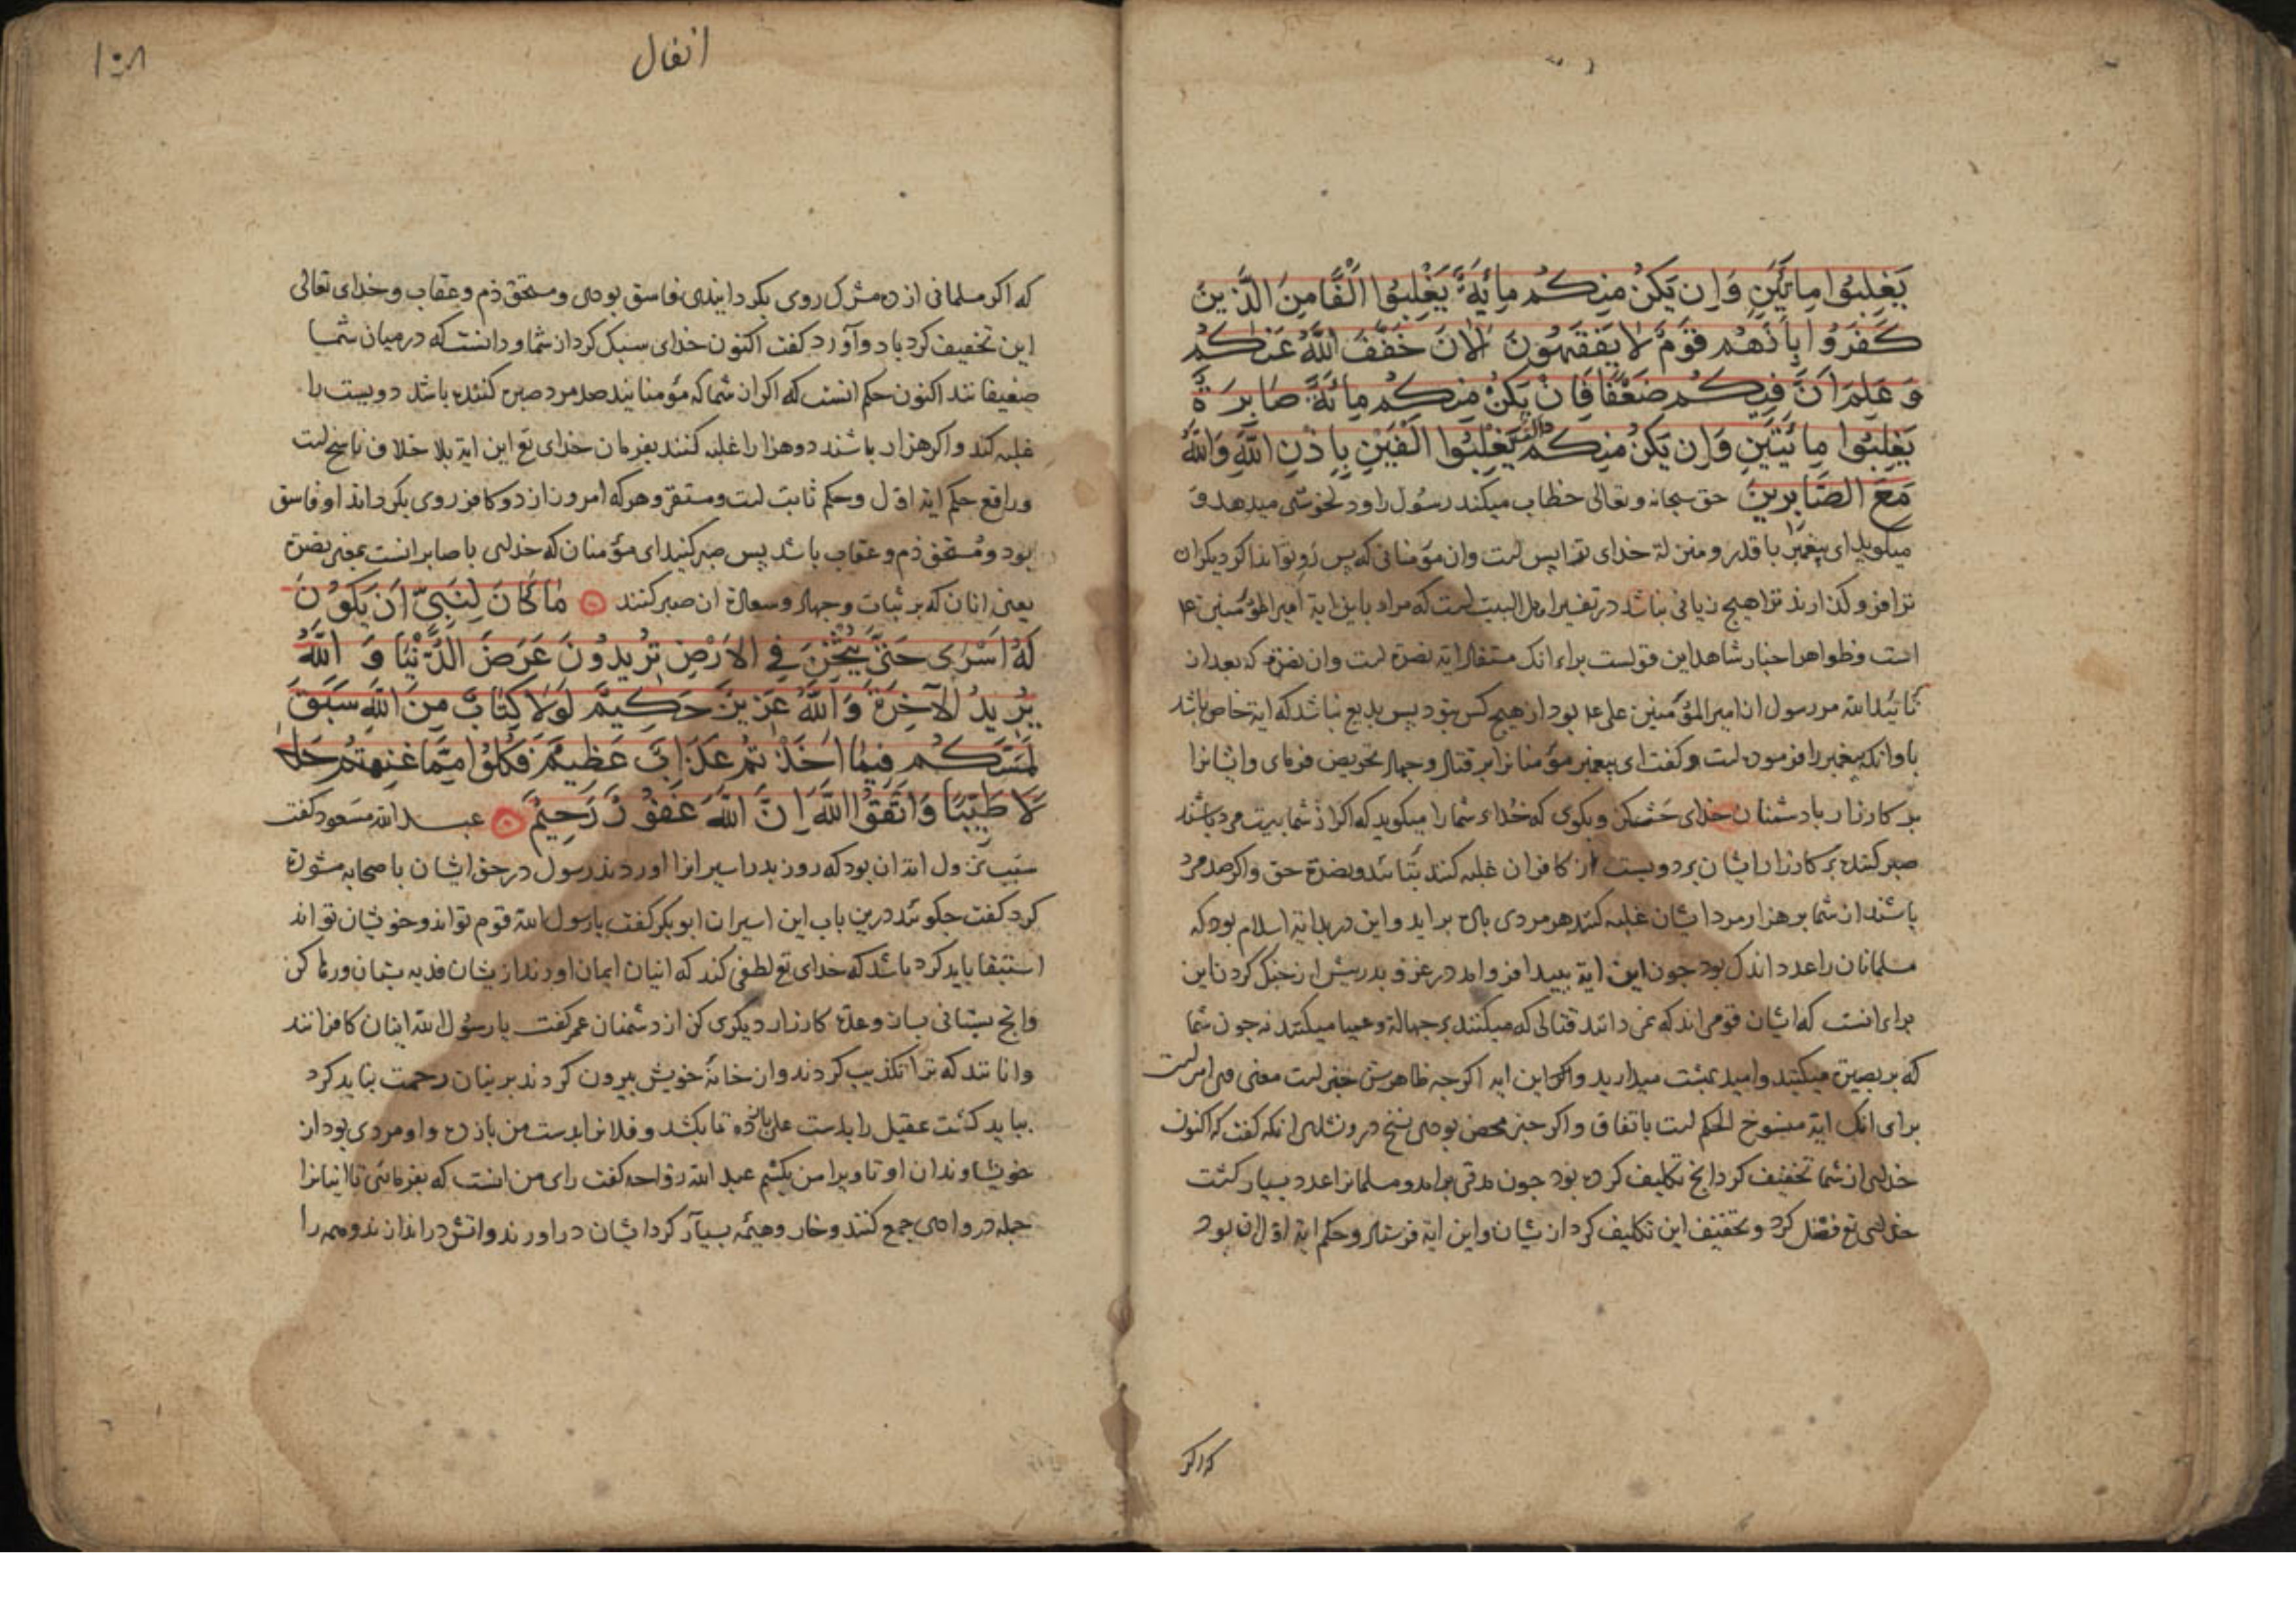 يَغْلِبُوا مِائَتَيْنِ وَاِن يَكُنْ مِنكُم مِائَةٌ يَغْلِبُوا اَلْفًا مِنَ الَّذِينَ
كَفَرُوا بِاَنَّهُم قَوْمٌ لَا يَفْقَهُونَ اَلْاٰنَ خَفَّفَ اللَّهُ عَنكُم
وَعَلِمَ اَنَّ فِيكُم ضَعْفًا فَاِنْ يَكُنْ مِنكُم مِائَةٌ صَابِرَةٌ
يَغْلِبُوا مِائَتَيْنِ وَاِن يَكُنْ مِنكُم اَلْفٌ يَغْلِبُوا اَلْفَيْنِ بِاِذْنِ اللَّهِ وَاللَّهُ
مَعَ الصَّابِرِينَ حق سبحانه و تعالی خطاب میکند رسول را و دلخوشی میدهد و
میکوید ای پیغمبر با قدر و منزلة خدای ترا بس است و ان مؤمنانی که پس رو تواند اکر دیکران
ترا فرو کذارند ترا هیچ زیانی نباشد در تفسیر اهل البیت است که مراد باین ایة امیر المؤمنین ع
است و ظواهر اخبار شاهد این قولست برای انک مستفاد ایة نصرة است و ان نصرة که بعد از
تائید الله مر رسول را از امیر المؤمنین علی ع بود از هیچ کس نبود پس بدیع نباشد که ایة خاص باشد
باو انکه پیغمبر را فرموده است و کفت ای پیغمبر مؤمنانرا بر قتال و جهاد تحریض فرمای و ایشانرا
بر کارزار با دشمنان خدای حث کن و بکوی که خدای شما را میکوید که اکر از شما بیست مرد باشند
صبر کننده بر کارزار ایشان بر دویست از کافران غلبه کنند بتائید و نصرة حق و اکر صد مرد
باشند از شما بر هزار مرد ایشان غلبه کنند هر مردی با ده براید و این در بدایة اسلام بود که
مسلمانان را عدد اندک بود چون این ایة بیامد
برای انست که ایشان قومی اند که نمی دانند قتالی که میکنند بر جهالة و عمیا میکنند نه چون شما
که بر بصیرة میکنید و امید بهشت میدارید و این ایه اکرچه ظاهرش خبر است معنی وی امر است
برای انک ایة منسوخ الحکم است باتفاق و اکر خبر محض بودی نسخ در و نشدی انکه کفت که اکنون
خدای از شما تخفیف کرد انچ تکلیف کرده بود چون مدتی برامد و مسلمانرا عدد بسیار کشت
خدای تع فضل کرد و تخفیف این تکلیف کرد از یشان و این ایة فرستاد و حکم ایة اول ان بود
که اکر
۱۵۸
انفال
که اکر مسلمانی از ده مشرک روی بکردانیدی فاسق بودی و مستحق ذم و عقاب و خدای تعالی
این تخفیف کرد باد و آورد کفت اکنون خدای سبک کرد از شما و دانست که در میان شما
ضعیفانند اکنون حکم انست که اکر از شما که مؤمنانید صد مرد صبر کننده باشد دویست را
غلبه کند و اکر هزار باشند دو هزار را غلبه کنند بفرمان خدای تع این ایة بلا خلاف ناسخ است
و رافع حکم ایة اول و حکم ثابت است و مستقر و هرکه امروز از دو کافر روی بکرداند او فاسق
بود و مستحق ذم و عقاب باشد پس صبر کنید ای مؤمنان که خدای با صابرانست بمعنی نصرة
یعنی انان که بر ثبات و جهاد و سعادة ان صبر کنند مَا كَانَ لِنَبِيٍّ اَنْ يَكُونَ
لَهُ اَسْرٰى حَتّٰى يُثْخِنَ فِي الْاَرْضِ تُرِيدُونَ عَرَضَ الدُّنْيَا وَ اللَّهُ
يُرِيدُ الْآخِرَةَ وَاللَّهُ عَزِيزٌ حَكِيمٌ لَوْلَا كِتَابٌ مِنَ اللَّهِ سَبَقَ
لَمَسَّكُم فِيمَا اَخَذْتُمْ عَذَابٌ عَظِيمٌ فَكُلُوا مِمَّا غَنِمْتُمْ حَلَا
لًا طَيِّبًا وَاتَّقُوا اللَّهَ اِنَّ اللَّهَ غَفُورٌ رَحِيمٌ عبد الله مسعود کفت
سبب نزول ایة ان بود که روز بدر اسیرانرا اوردند رسول در حق ایشان با صحابه مشورة
کرد کفت چکوئید درین باب این اسیران ابو بکر کفت یا رسول الله قوم تواند و خویشان تواند
استبقا باید کرد باشد که خدای تع لطفی کند که اینان ایمان اورند از یشان فدیه بستان و رها کن
وانچ بستانی بساز و عدة کارزار دیکری کن از دشمنان عمر کفت یا رسول الله اینان کافرانند
و انانند که ترا تکذیب کردند و از خانهٔ خویش بیرون کردند بر ینان رحمت نباید کرد
بباید کشت عقیل را بدست علی باز ده تا بکشد و فلانرا بدست من باز ده و او مردی بود از
خویشاوندان او تا ویرا من بکشم عبد الله رواحه کفت رای من انست که بفرمائی تا اینانرا
جمله در وادی جمع کنند و خار و هیمه بسیار کرد ایشان در اورند و اتش در اندازند و همه را